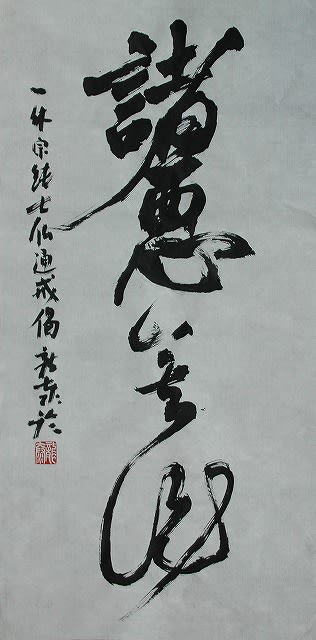 諸悪莫作
一休宗純七仏通戒偈